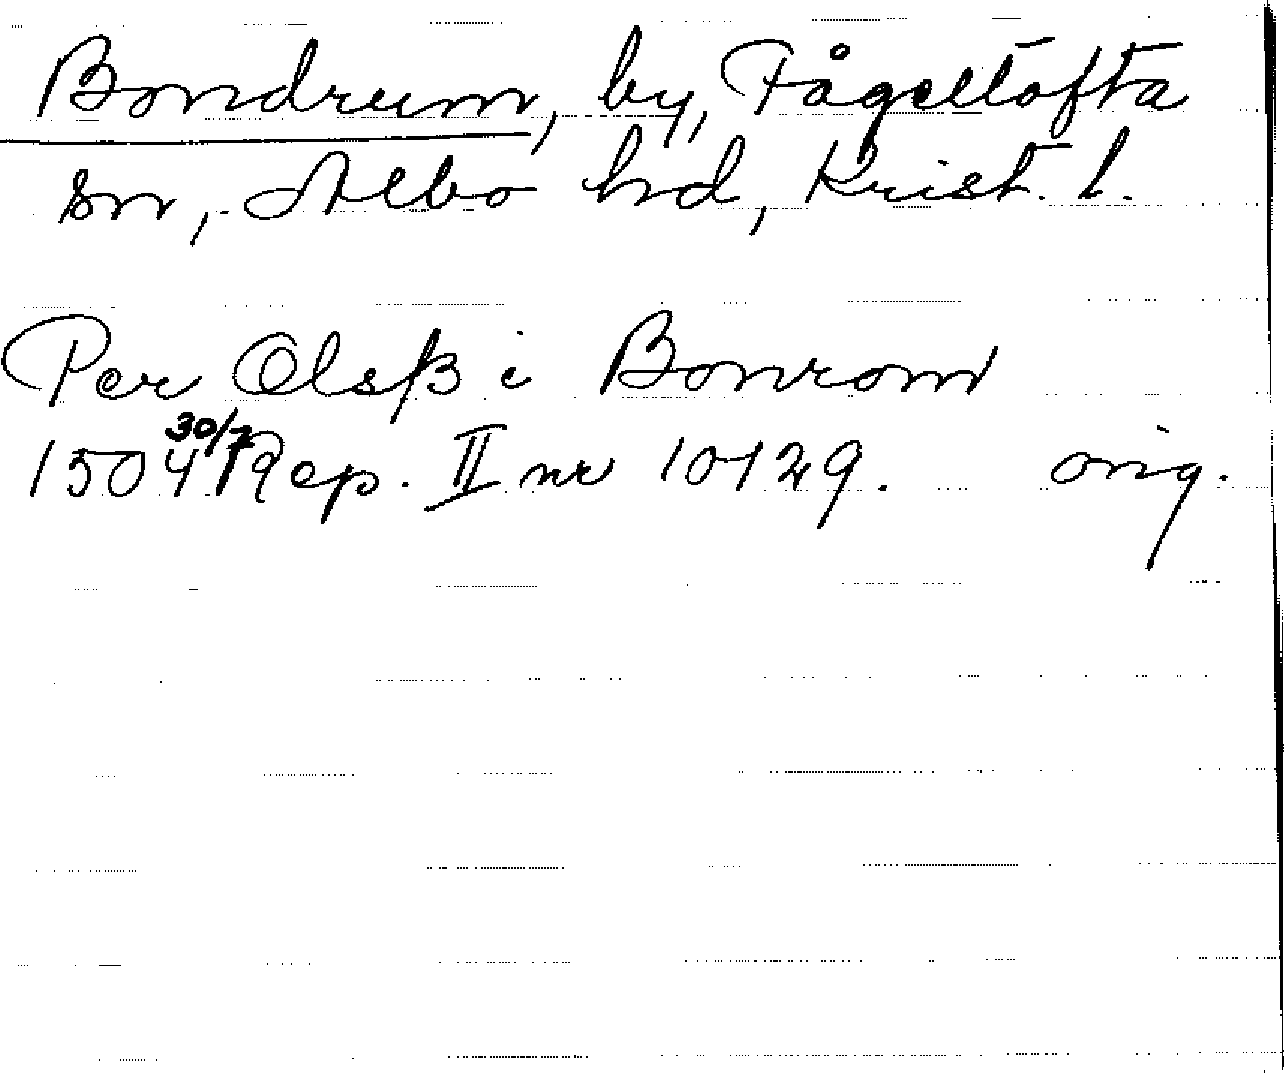 Bondrum, by, Fågeltofta
sn, Albo hd, Krist. l.
Per Olsß i Bonrom
1504 30/7 Rep. II nr 10129. orig.